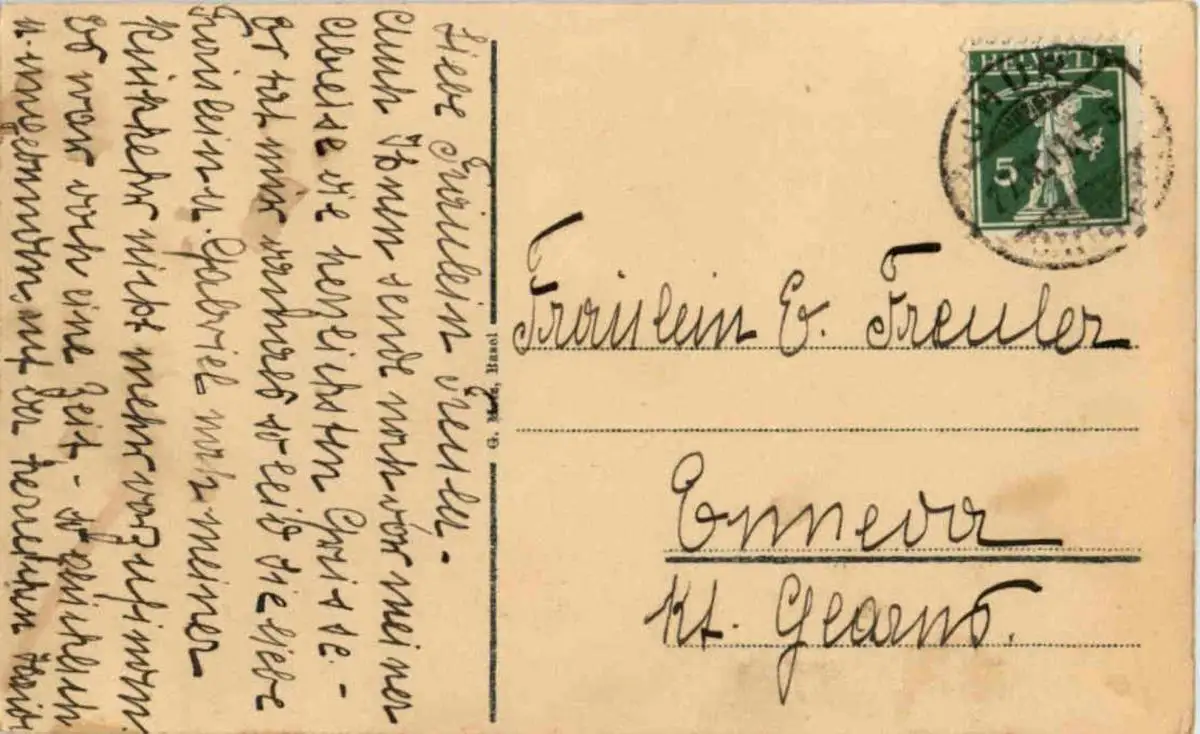 Liebe Fräulein Freuler. -
Auch Ihnen sende noch vor meiner
Abreise die herzlichsten Grüsse. -
Er tat mir so leid die liebe
Fräulein u. Gabriel nach meiner
Rückkehr nicht mehr vorzufinden
Es war doch eine Zeit. -
u. der herrlichen
G. Metz, Basel
HELVETIA
5
CHUR
Fräulein E. Freuler
Ennenda
Kt. Glarus.